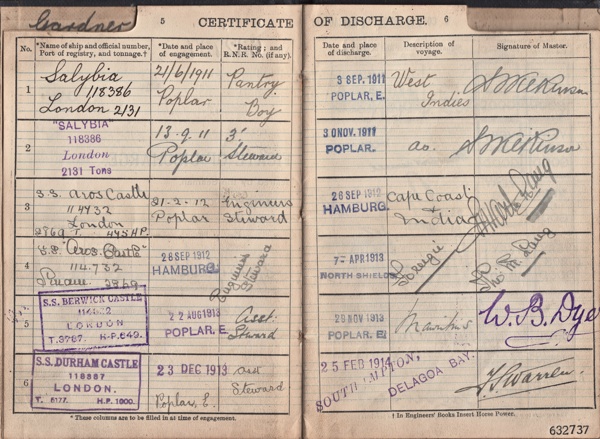 Gardner
5 CERTIFICATE OF DISCHARGE. 6
No. *Name of ship and official number, Port of registry, and tonnage.† *Date and place of engagement. *Rating; and R.N.R. No. (if any). Date and place of discharge. Description of voyage. Signature of Master.
1
Salybia
118386
London 2131
21/6/1911
Poplar
Pantry
Boy
3 SEP. 1911
POPLAR, E.
West
Indies
2
"SALYBIA"
118386
London
2131 Tons
13.9.11
Poplar
3'
Steward
3 NOV. 1911
POPLAR, E.
do.
3
S.S. Aros Castle
114732
London
21.2.12
Poplar
Engineers
Steward
26 SEP 1912
HAMBURG.
Cape Coast
India
4
S.S. "Aros Castle"
114.732
2969
28 SEP 1912
HAMBURG.
Engineers
Steward
7- APR 1913
NORTH SHIELDS
Foreign
5
S.S. BERWICK CASTLE
LONDON
22 AUG 1913
POPLAR, E.
Asst.
Steward
29 NOV 1913
POPLAR, E.
Mauritius
W. B. Dye
6
S.S. DURHAM CASTLE
LONDON.
T. 8177. H.P. 1000.
23 DEC 1913
Poplar, E.
Steward
25 FEB 1914
DELAGOA BAY.
Warren
* These columns are to be filled in at time of engagement.
† In Engineers' Books Insert Horse Power.
632737